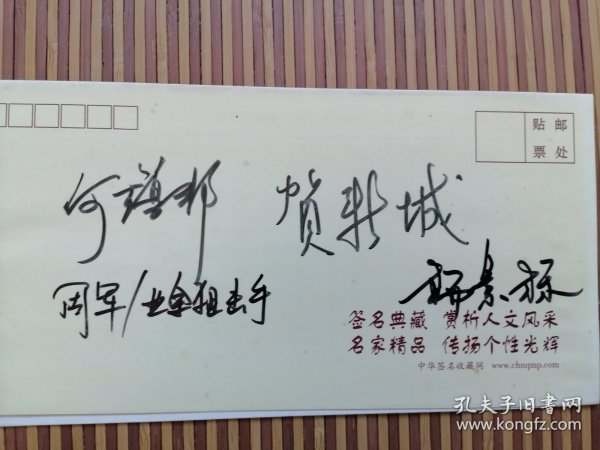 贴 邮
票 处
何镇邦 贺新城
周军/业余狙击手 杨景标
签名典藏 赏析人文风采
名家精品 传扬个性光辉
中华签名收藏网 www.chnqmp.com
孔夫子旧书网
www.kongfz.com